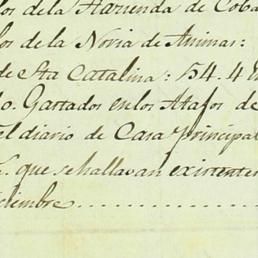 los dela Hazienda de Coba
los de la Noria de Animas:
de Sta Catalina: 154. 4 
o. Gastados en los Atajos de
el diario de Casa Principal
que se hallavan existente
ciembre